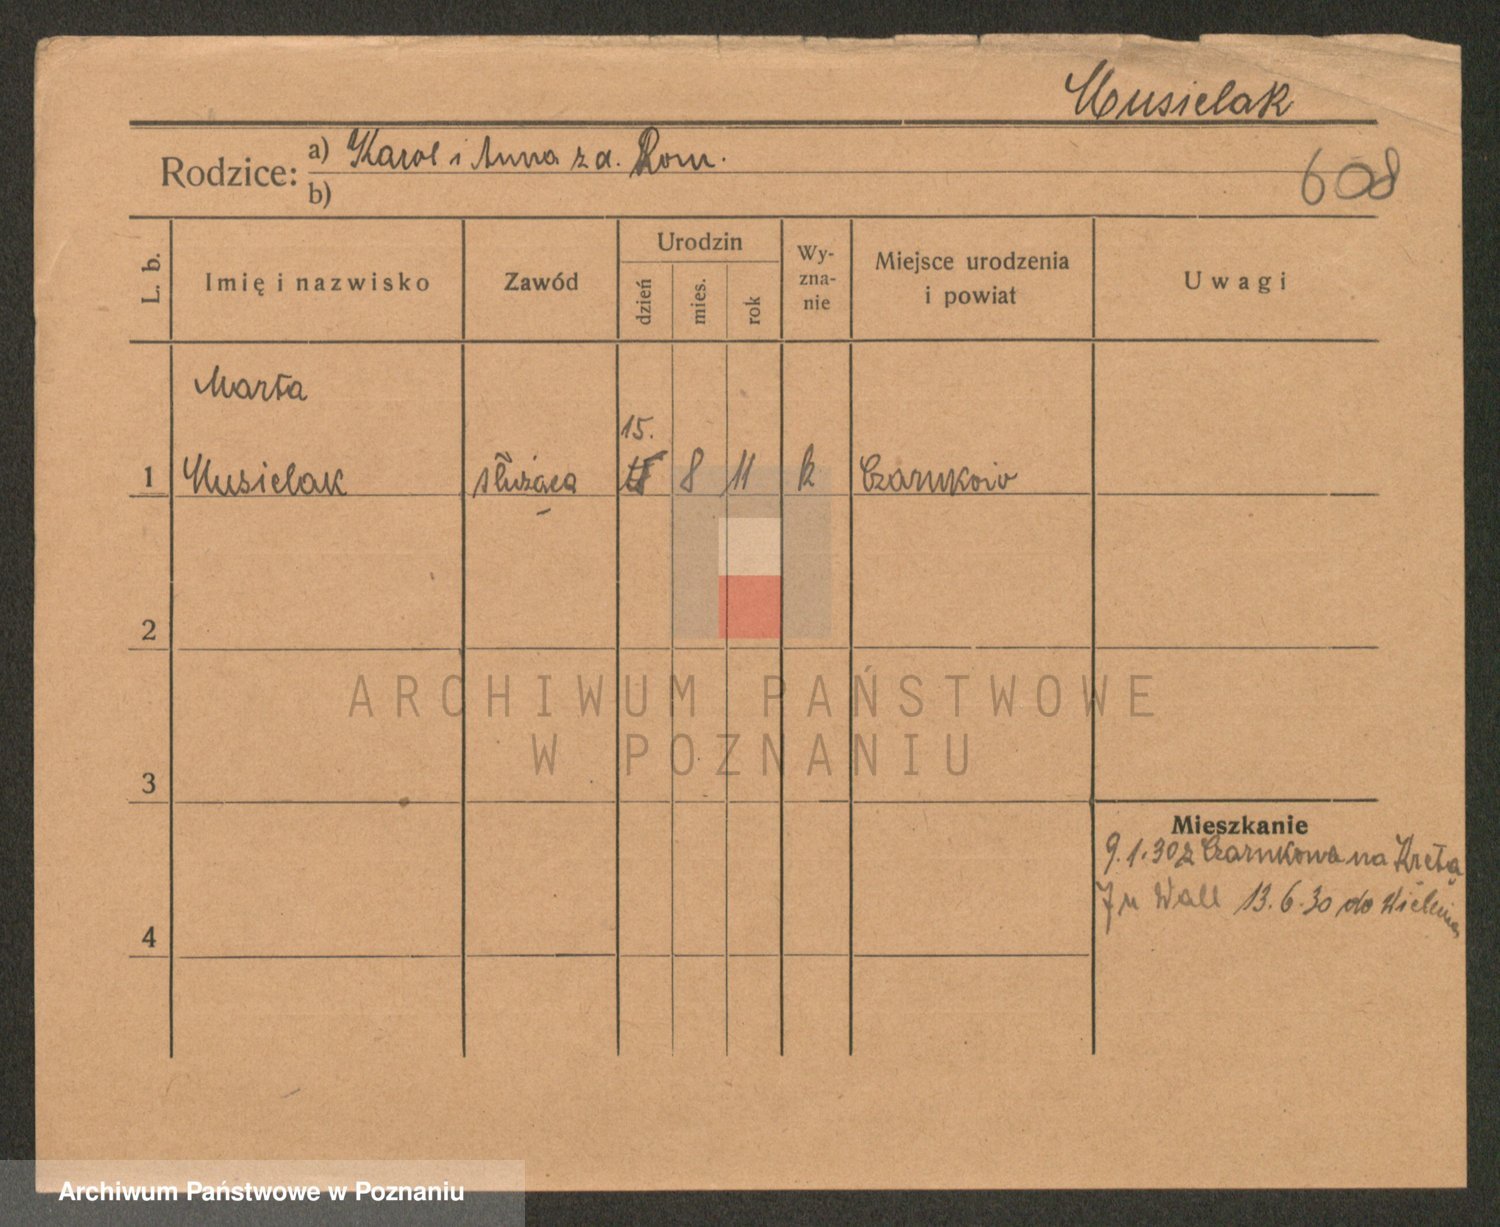 Musielak
Rodzice: a) Karol i Anna z d. Rom.
b)
608
L. b.
Imię i nazwisko
Zawód
Urodzin
dzień
mies.
rok
Wy-
zna-
nie
Miejsce urodzenia
i powiat
Uwagi
Marta
15.
1 Musielak służąca 8 11 k Czarnków
2
ARCHIWUM PAŃSTWOWE
W POZNANIU
3
Mieszkanie
9.1.30 z Czarnkowa na Krętą
7 u Wall 13.6.30 do Wielenia
4
Archiwum Państwowe w Poznaniu